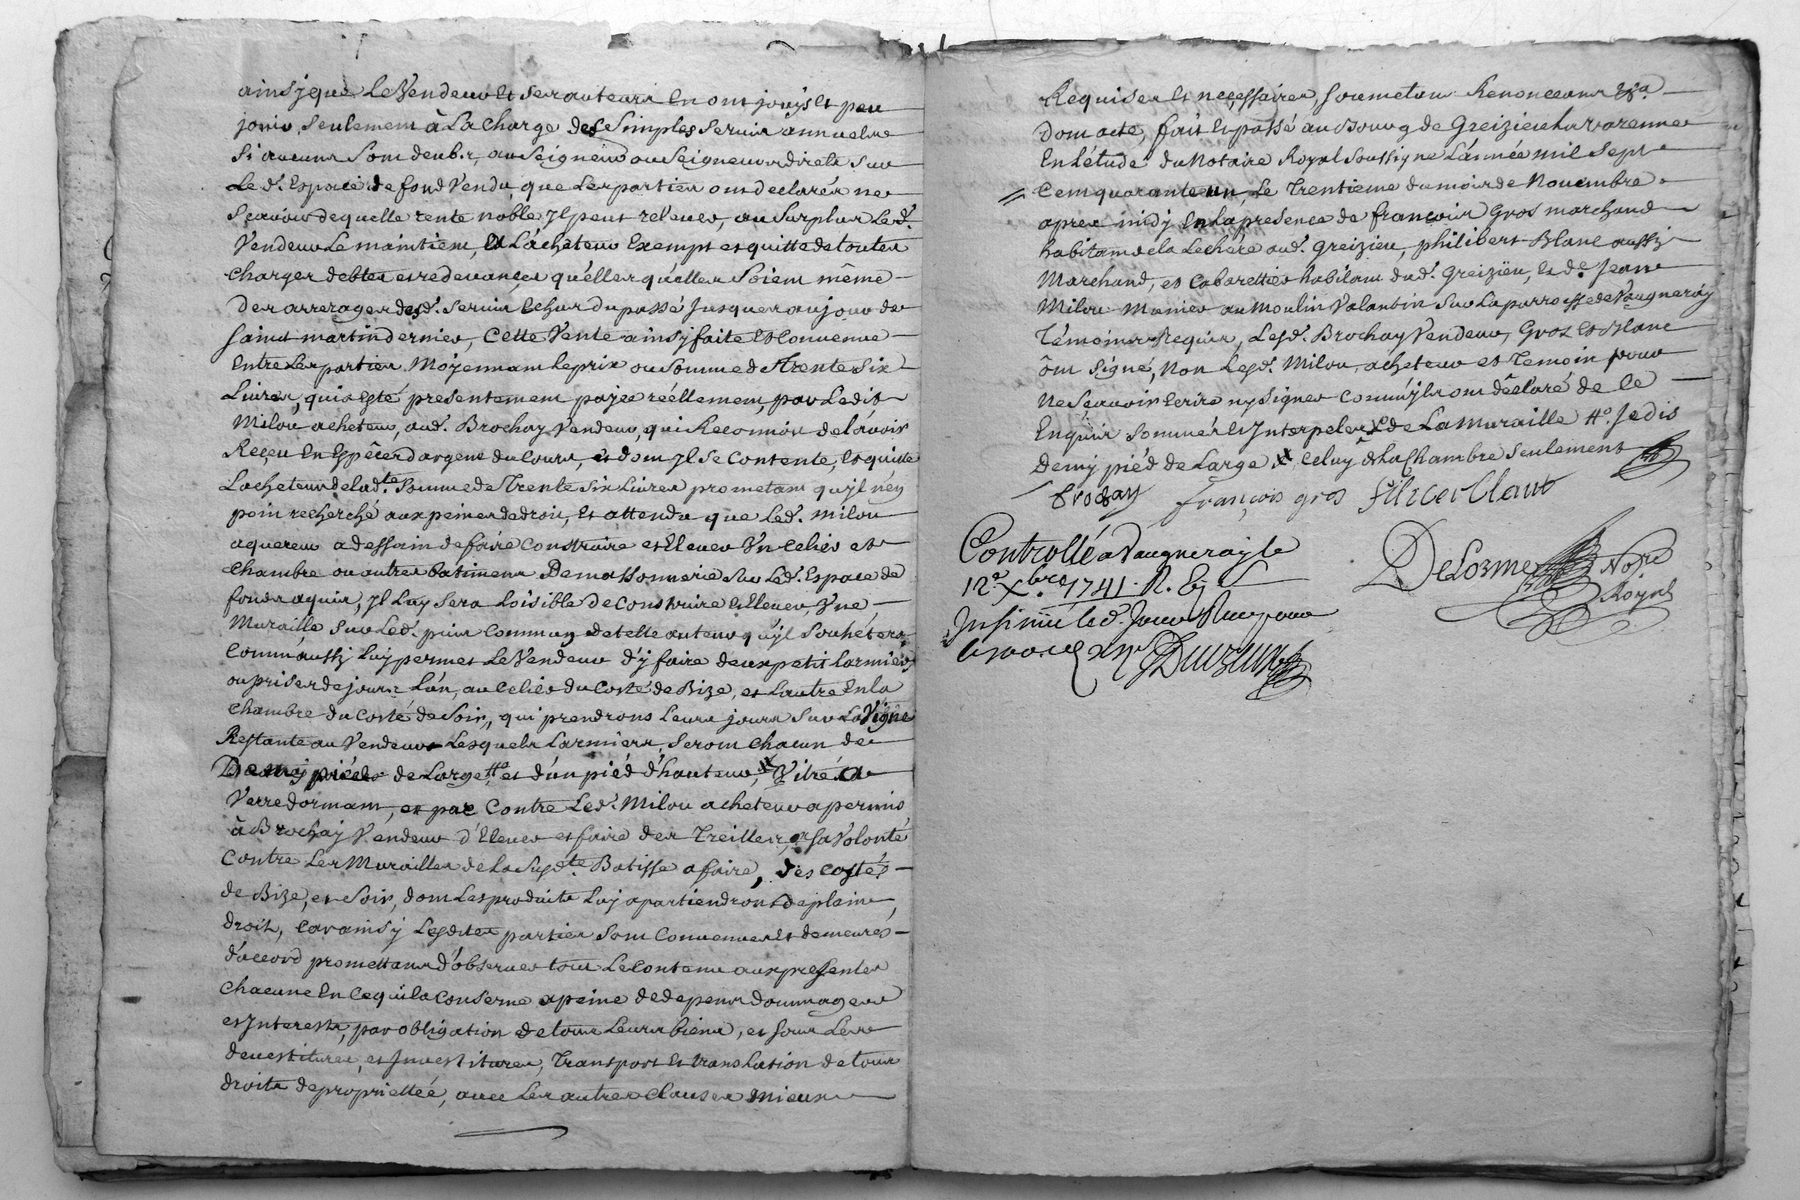 ainsy que le Vendeur et ses auteurs en ont jouys et peu
jouir, seulement à La charge des simples servis annuels
si aucuns sont deub.s, au seigneur ou seigneurs direts sur
Le d. Espace de fond Vendu, que Les parties ont declarés ne
sçavoir de quelle rente noble Il peut relever, au surplus Led.
Vendeur Le maintient, et L'acheteur Exempt et quitte de toutes
charges debtes et redevances qu'elles qu'elles soient même
Des arrerages desd. servis Echus du passé Jusques au jour de
saint martin dernier, Cette Vente ainsy faite et Convenue
Entre Les parties Moyennant Le prix ou somme de Trente six
Livres, qui a esté présentement payée réellement, par Ledit
Milou acheteur, aud. Brochay Vendeur, qui Reconnois de L'avoir
Reçeu En Espêces d'argent du cours, et dont Il se contente, Et quitte
L'acheteur de lad.te somme de Trente six Livres prometant qu'il n'en
poin recherché aux peines de droit, Et attendu que Led. milou
aquereur a dessain de faire Construire et Elever Un Celier et
Chambre ou autres batiments De massonnerie sur Led. Espace de
fonds aquis, Il Luy sera Loisible de Construire et Elever, Une
Muraille sur Led. puis commun de telle auteur qu'il souhetera
Comm'aussy Luy permet Le Vendeur d'y faire deux petits Larmiers
ou prises de jours L'un, au Celier du Costé de Bize, et L'autre En la
Chambre du Costé de soir, qui prendrons Leurs jours sur La Vigne
Restante au Vendeur Lesquels Larmiers, seront chacun de
Demy piéds de Large #o et d'un piéd d'hauteur, X Vitré a
Verre dormant, et par Contre Led. Milou acheteur a permis
à Brochay Vendeur d'Elever et faire des Treilles, a sa Volonté
Contre Les Murailles de La susd.te Batisse a faire, des costés
de Bize, et soir, dont Les produits Luy apartiendront de plain
droit, Car ainsy Lesdites parties sont Convenues Et demeurés
d'accord promettans d'observer tout Le Contenu aux presentes
chacune En Ce qui la Conserne a peine de depens dommages
et Interests, par obligation de tous Leurs biens, et sous Les
devestitures, et Investitures, Transport Et translation de tous
droits de proprietté, avec Les autres Clauses mieux
Requises Et neçessaires, soumetons Renonceans &a.
Dont acte, fait et passé au Bourg de Greizieu La Varenne
En L'étude du Notaire Royal soussigné L'année mil sept
Cent quarante un, Le Trentieme du mois de Novembre
apres midy En La presence de françois Gros marchand
habitant de la Lechere aud. Greizieu, philibert Blanc aussy
Marchand, et Cabarettier habitant dud. Greizieu, Et de Jean
Milou Munier au Moulin Valantin sur La parroisse de Vaugneray
Témoins Requis, Lesd. Brochay Vendeur, Gros Et Blanc
ônt signé, Non Lesd. Milou acheteur et Temoin pour
Ne sçavoir Ecrire ny signer Comm'ils ont déclaré de Ce
Enquis sommés Et Interpelés X de La Muraille #o Je dis
Demy piéd de Large X, celuy de la Chambre seulement
Brochay françois gros philibert blanc
Controllé a Vaugneray le
DeLorme Nore
12e Xbre 1741. R.
Royal
Insinué led. Jour